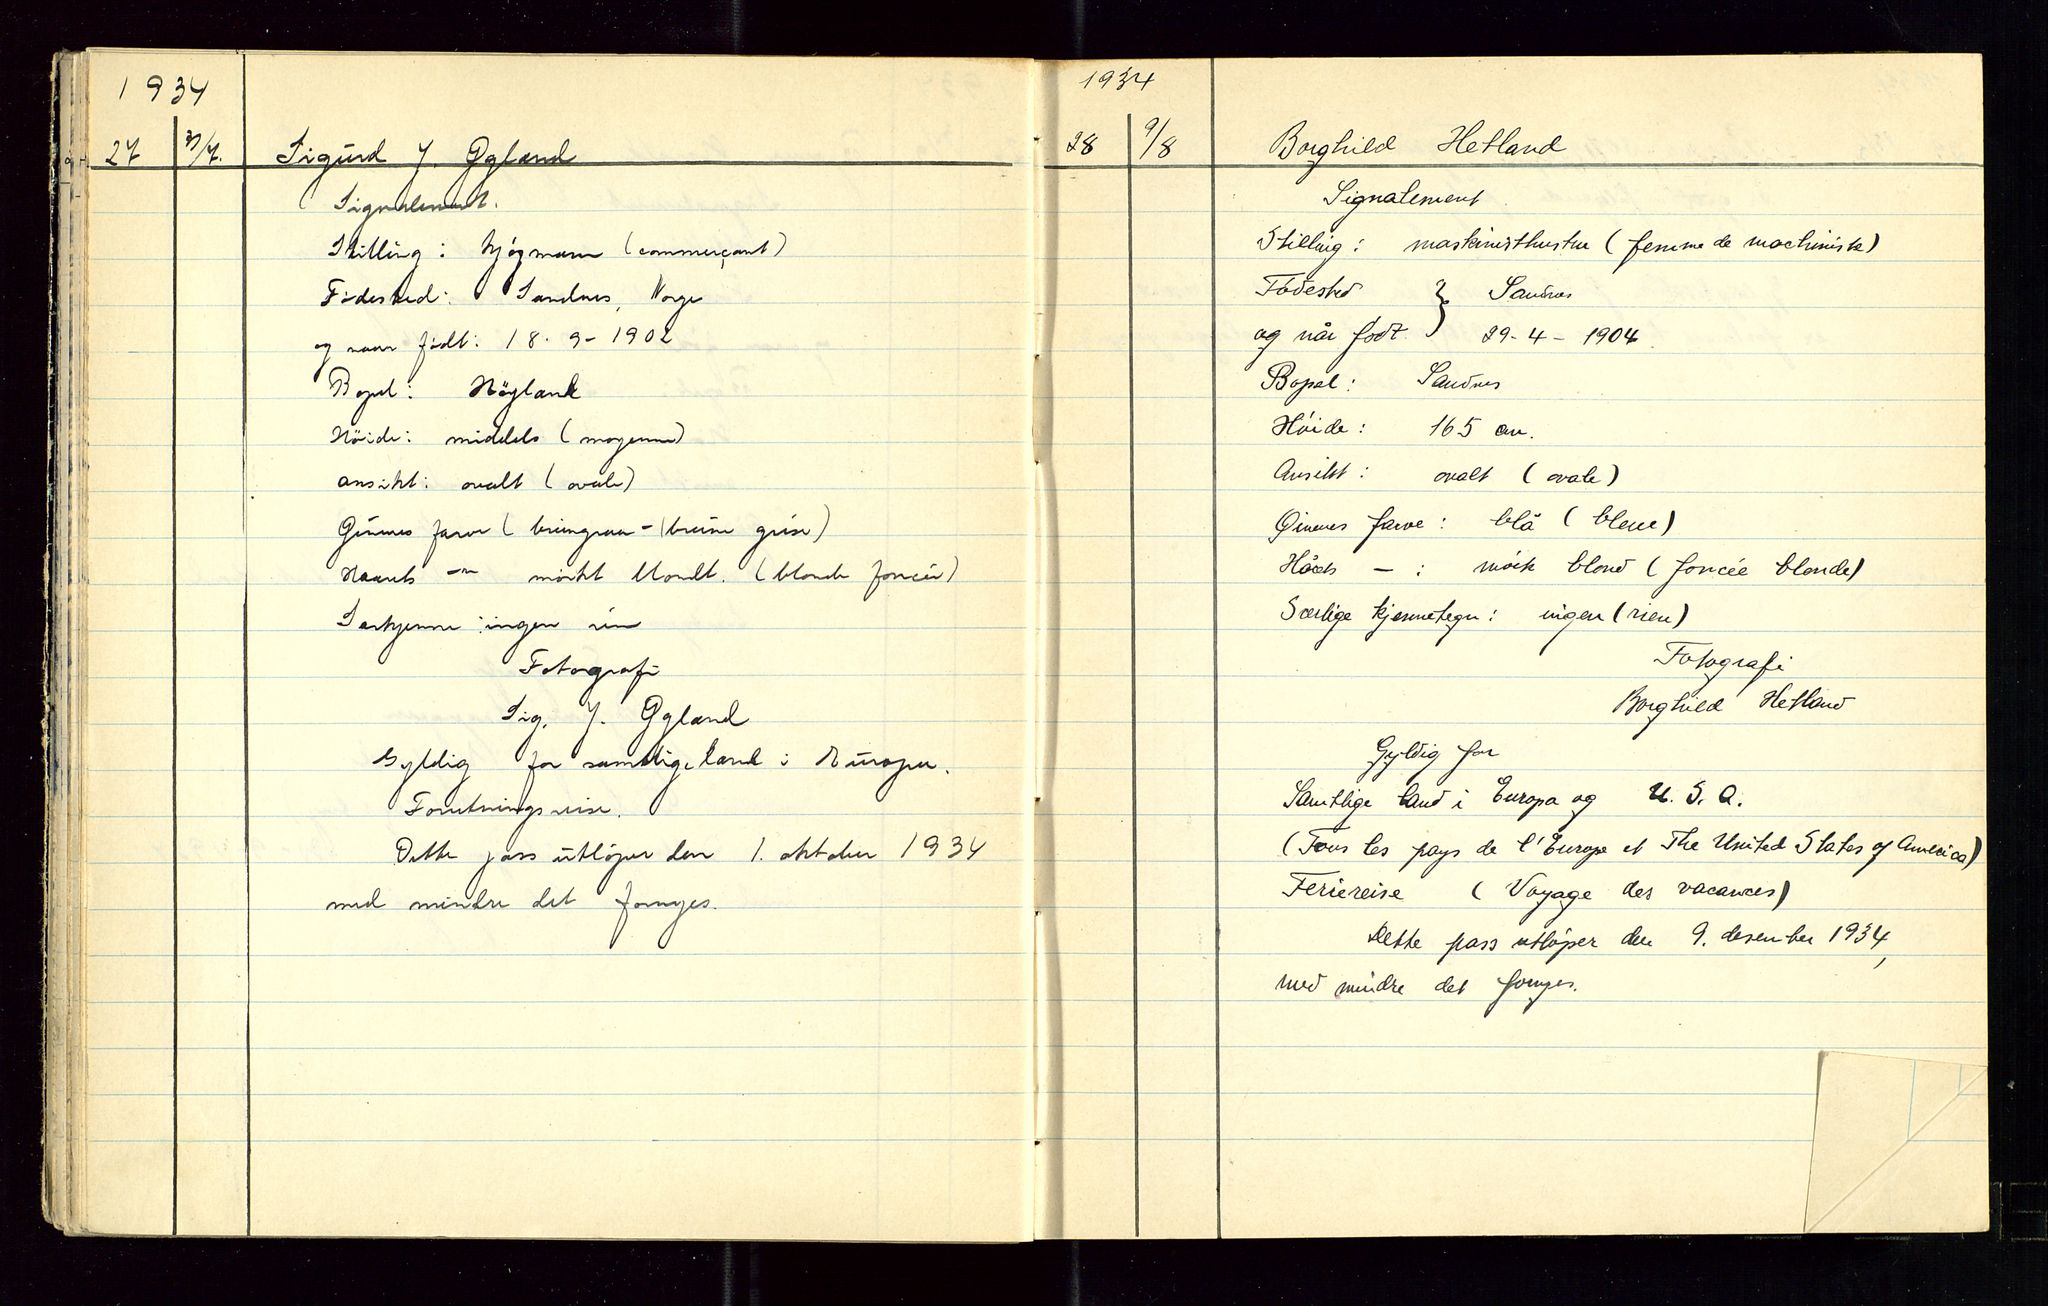 1934
27 31/7. Sigurd J. Øgland
Signalement.
Stilling: kjøpmann (commerçant)
Fødested: Sandnes, Norge
og naar født: 18-9-1902
Bopel: Høyland
Høide: middels (moyenne)
ansikt: ovalt (ovale)
Øinenes farve (brungraa - (brune grise)
Haarets -"- mørkt blondt. (blonde foncée)
Særkjenne: ingen rien
Fotografi
Sig. J. Øgland
Gyldig for samtlige land i Europa.
Forretningsreise.
Dette pass utløper den 1. oktober 1934
med mindre det fornyes.
1934
28 9/8 Borghild Hetland
Signalement
Stilling: maskinisthustru (femme de machiniste)
Fødested } Sandnes
og når født } 29-4-1904
Bopel: Sandnes
Høide: 165 cm.
Ansikt: ovalt (ovale)
Øinenes farve: blå (bleue)
Hårets - : mørk blond (foncée blonde)
Særlige kjennetegn: ingen (rien)
Fotografi
Borghild Hetland
Gyldig for
Samtlige land i Europa og U.S.A.
(Tous les pays de l'Europe et The United States of America)
Feriereise (Voyage des vacances)
Dette pass utløper den 9. desember 1934,
med mindre det fornyes.